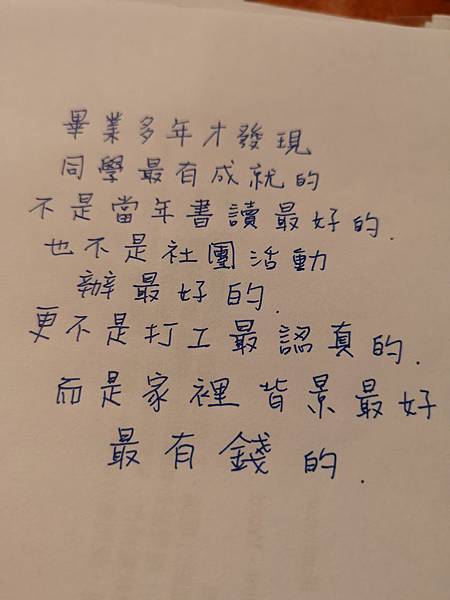 畢業多年才發現
同學最有成就的
不是當年書讀最好的.
也不是社團活動
辦最好的.
更不是打工最認真的.
而是家裡背景最好
最有錢的.